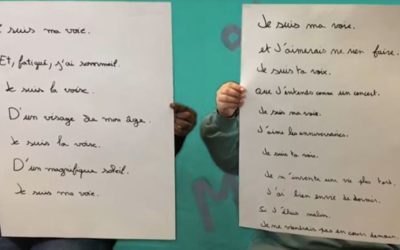 suis ma voie.
Et, fatigué, j'ai sommeil.
Je suis la voix.
D'un visage de mon âge.
Je suis la voix.
D'un magnifique soleil.
Je suis ma voie.
Je suis ma voie.
et J'aimerais ne rien faire.
Je suis ta voix.
que J'entends comme un concert.
Je suis ma voie.
J'aime les anniversaires.
Je suis ta voix.
Je m'invente une vie plus tard.
J'ai bien envie de dormir.
Si J'étais malin.
Je ne viendrais pas en cours demain.